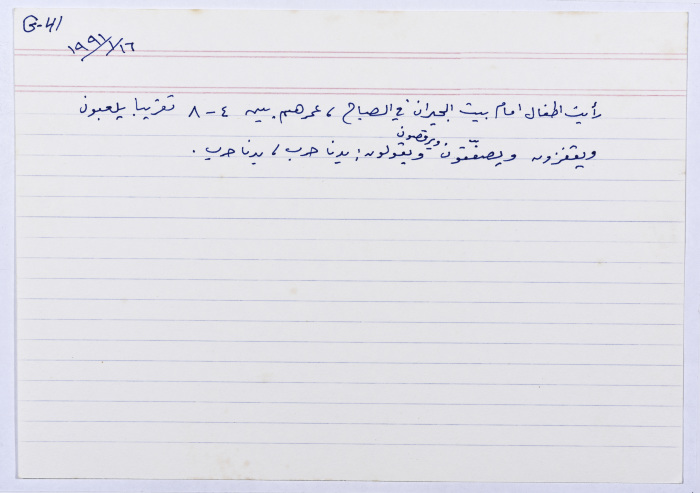 G-41
١٩٩١/١/١٦
رأيت اطفال امام بيت الجيران في الصباح، عمرهم بين ٤-٨ تقريبا يلعبون
ويرقصون
ويقفزون ويصفّقون ويقولون: بدنا حرب، بدنا حرب.